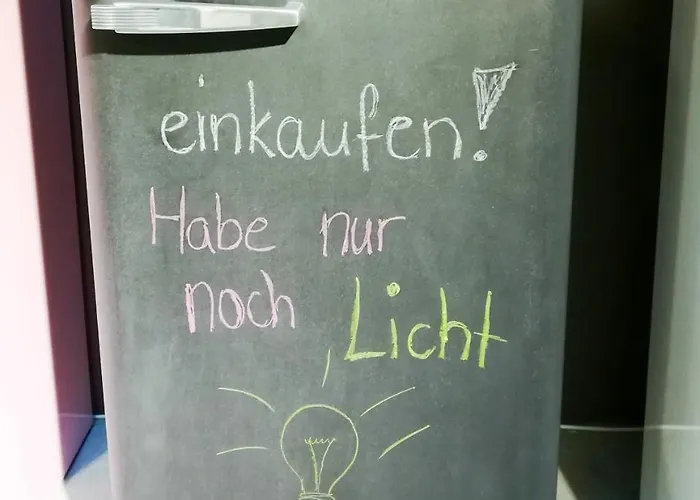 einkaufen!
Habe nur
noch Licht